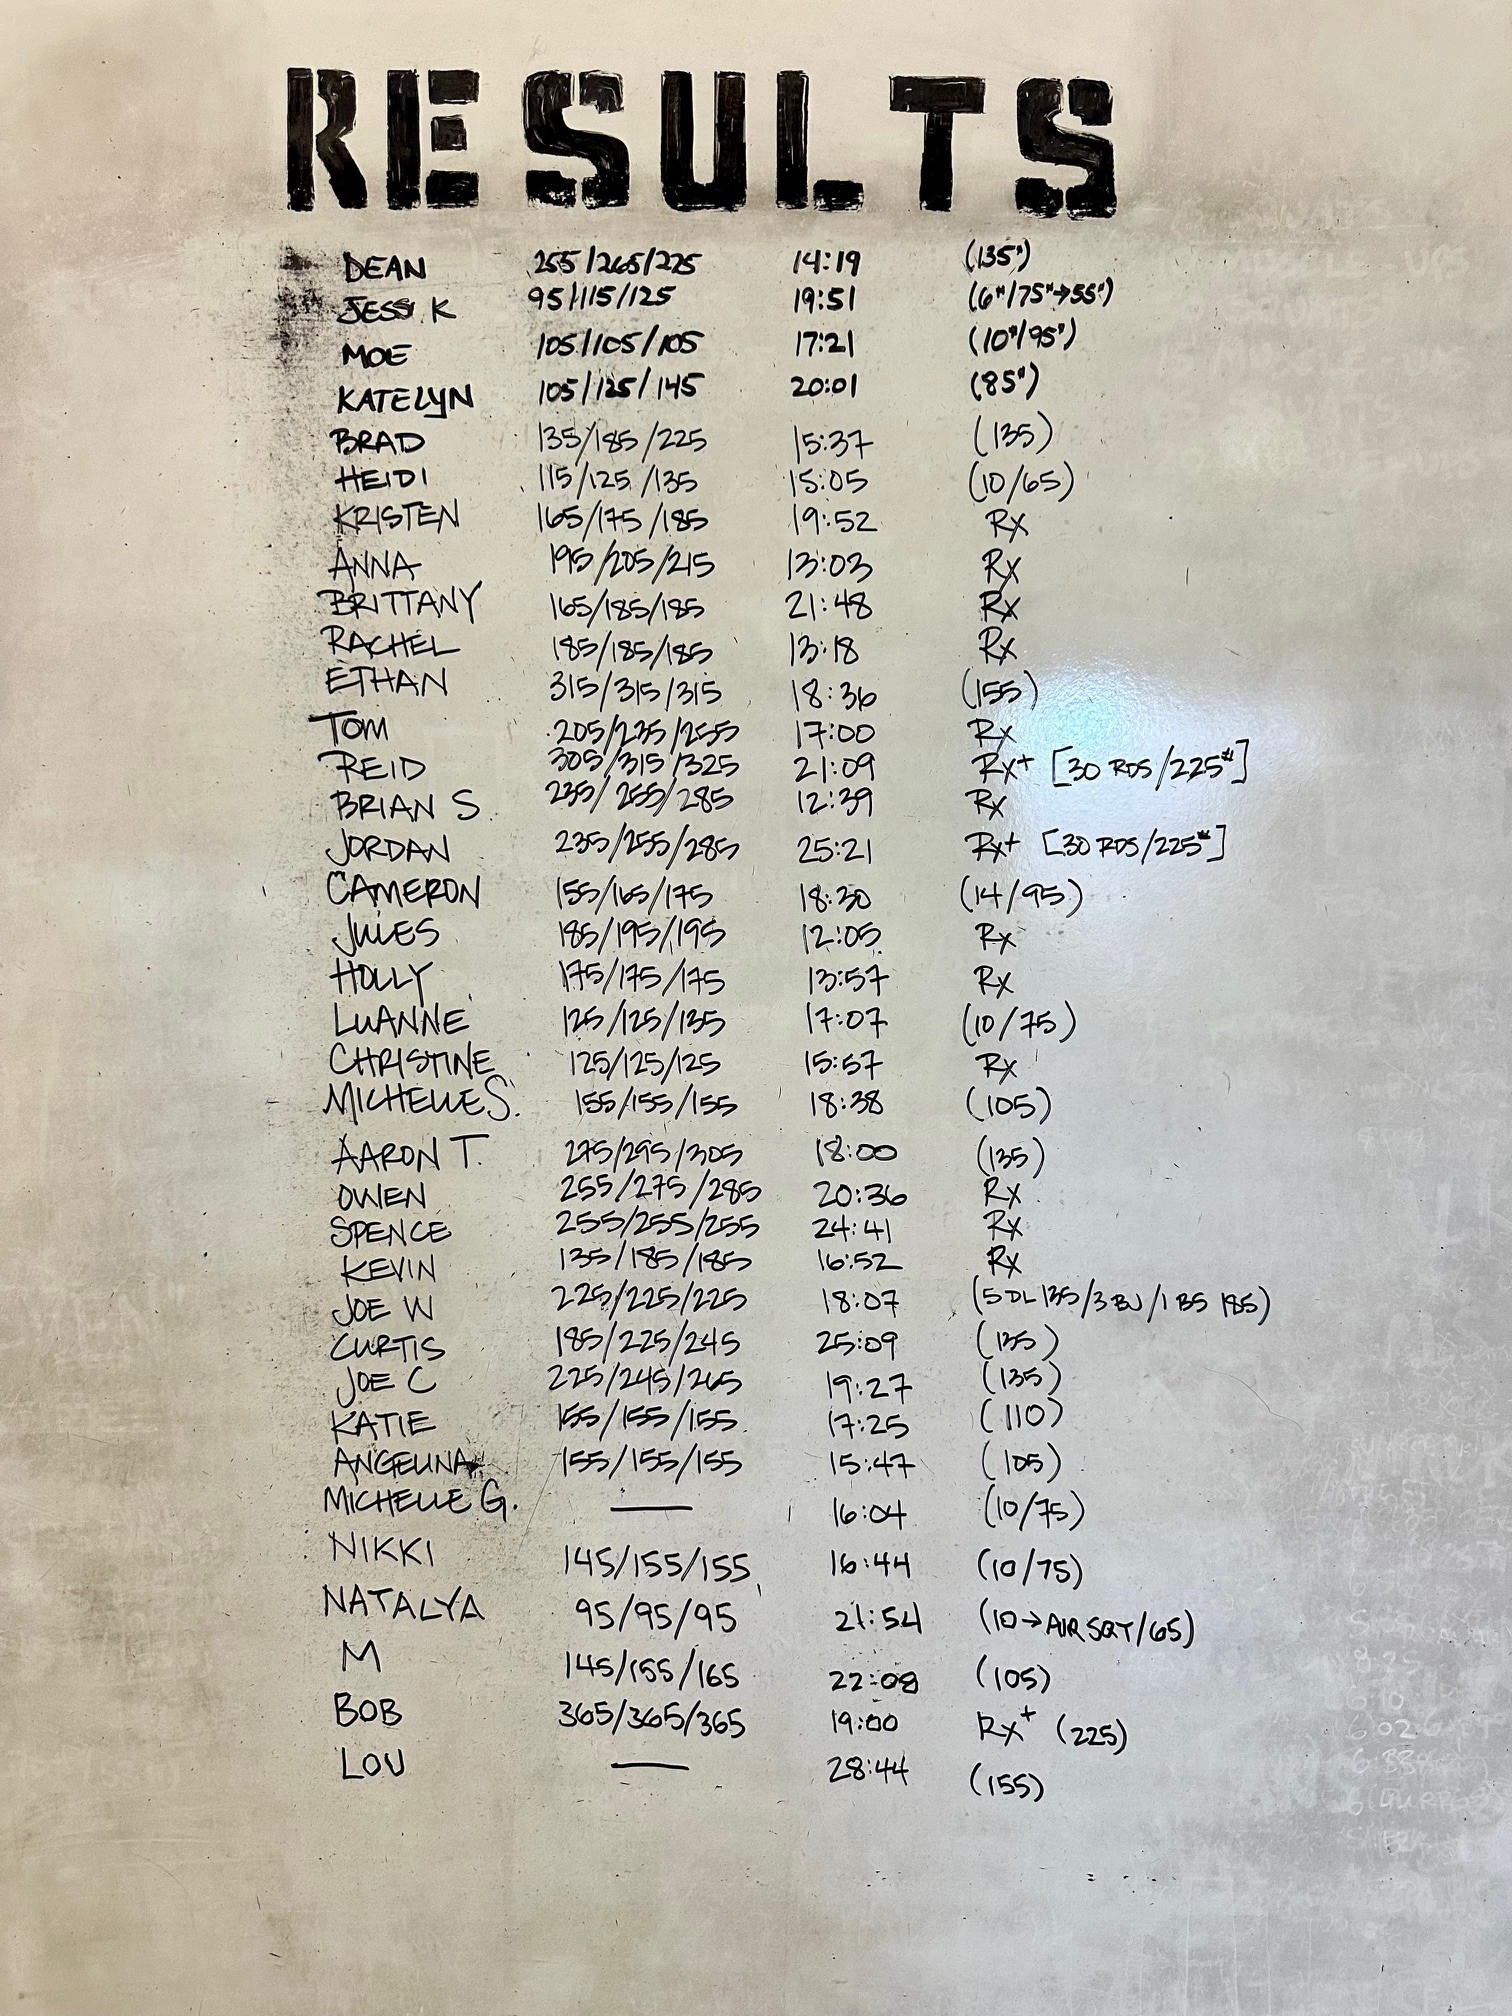 RESULTS
DEAN 255/265/275 14:19 (135#)
JESS K 95/115/125 19:51 (6"/75#→55#)
MOE 105/105/105 17:21 (10#/95#)
KATELYN 105/125/145 20:01 (85#)
BRAD 135/185/225 15:37 (135)
HEIDI 115/125/135 15:05 (10/65)
KRISTEN 165/175/185 19:52 Rx
ANNA 195/205/215 13:03 Rx
BRITTANY 165/185/185 21:48 Rx
RACHEL 185/185/185 13:18 Rx
ETHAN 315/315/315 18:36 (155)
TOM 205/235/255 17:00 Rx
REID 305/315/325 21:09 Rx+ [30 RDS/225#]
BRIAN S. 235/255/285 12:39 Rx
JORDAN 235/255/285 25:21 Rx+ [30 RDS/225#]
CAMERON 155/165/175 18:30 (14/95)
JULES 185/195/195 12:05 Rx
HOLLY 175/175/175 13:57 Rx
LUANNE 125/125/135 17:07 (10/75)
CHRISTINE 125/125/125 15:57 Rx
MICHELLE S. 155/155/155 18:38 (105)
AARON T. 275/295/305 18:00 (135)
OWEN 255/275/285 20:36 Rx
SPENCE 255/255/255 24:41 Rx
KEVIN 135/185/185 16:52 Rx
JOE W 225/225/225 18:07 (5 DL 135/3 BJ/1 BS 185)
CURTIS 185/225/245 25:09 (135)
JOE C 225/245/265 19:27 (135)
KATIE 155/155/155 17:25 (110)
ANGELINA 155/155/155 15:47 (105)
MICHELLE G. — 16:04 (10/75)
NIKKI 145/155/155 16:44 (10/75)
NATALYA 95/95/95 21:54 (10→AIR SQT/65)
M 145/155/165 22:08 (105)
BOB 365/365/365 19:00 Rx+ (225)
LOU — 28:44 (155)